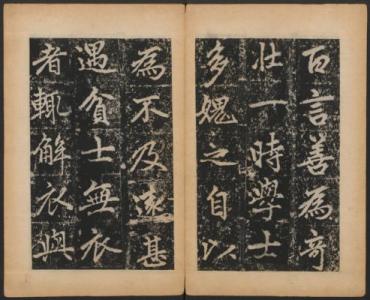 百言善為奇
壯一時學士
多媿之自以
為不及遠甚
遇貧士無衣
者輒解衣與